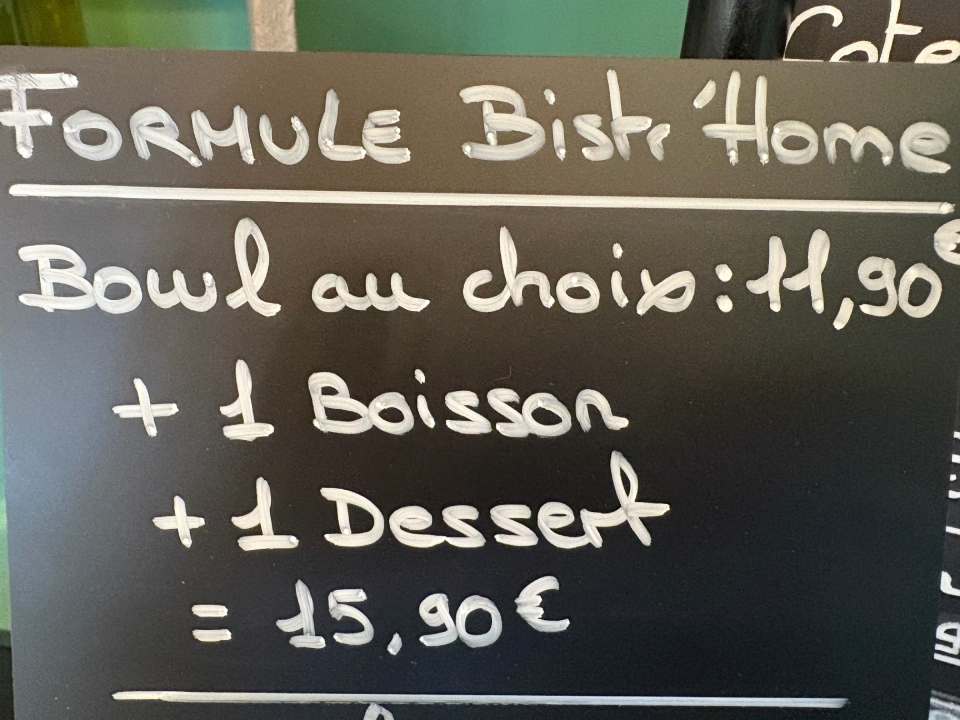 Cote
FORMULE Bistr'Home
Bowl au choix : 11,90€
+ 1 Boisson
+ 1 Dessert
= 15,90€